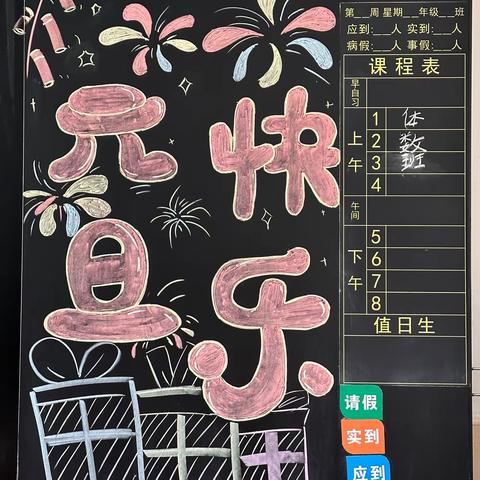 元旦
快乐
第__周 星期__年级__班
应到:__人 实到:__人
病假:__人 事假:__人
课程表
早自习
上午
1 体
2 数
3 班
4
午间
下午
5
6
7
8
值日生
请假
实到
应到